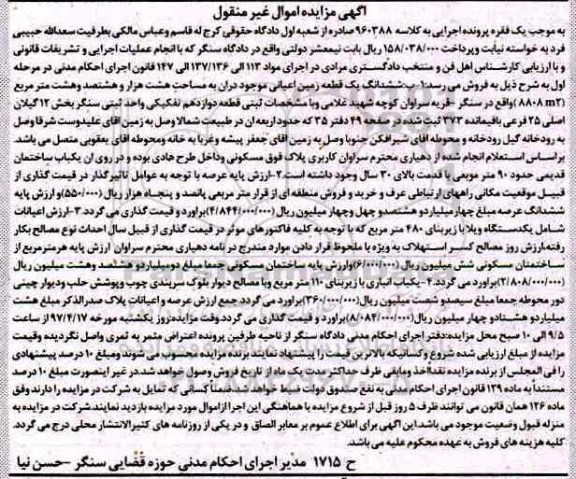 آگهی مزایده اموال غیر منقول
به موجب یک فقره پرونده اجرایی به کلاسه ۹۶۰۳۸۸ صادره از شعبه اول دادگاه حقوقی کرج له قاسم وعباس مالکی بطرفیت سعدالله حبیبی
فرد به خواسته نیابت وپرداخت ۱۵۸/۰۳۸/۰۰۰ ریال بابت نیمعشر دولتی واقع در دادگاه سنگر که با انجام عملیات اجرایی و تشریفات قانونی
و با ارزیابی کارشناس اهل فن و منتخب دادگستری مرادی در اجرای مواد ۱۱۳ الی ۱۳۷/۱۳۶ الی ۱۴۷ قانون اجرای احکام مدنی در مرحله
اول به شرح ذیل به فروش می رسد:۱-ششدانگ یک قطعه زمین اعیانی موجود درآن به مساحت هشت هزار و هشتصد وهشت متر مربع
(۸۸۰۸ m۲)واقع در سنگر -قریه سراوان کوچه شهید غلامی وبا مشخصات ثبتی قطعه دوازدهم تفکیکی واحد ثبتی سنگر بخش ۱۲ گیلان
اصلی ۲۵ فرعی باقیمانده ۳۷۳ ثبت شده در صفحه ۴۹ دفتر ۳۵ که حدود اربعه آن در طبیعت شمالا وصل به زمین اقای علیدوست شرقا وصل
به رودخانه گیل رودخانه و محوطه اقای شیرافکن جنوبا وصل به زمین اقای جعفر پیشه وغربا به خانه ومحوطه اقای یعقوبی متصل می باشد.
براساس استعلام انجام شده از دهیاری محترم سراوان کاربری پلاک فوق مسکونی وداخل طرح هادی بوده و در روی آن یکباب ساختمان
قدیمی حدود ۹۰ متر مربعی با قدمت بالای ۳۰ سال وجود داشته است.۲-ارزش پایه عرصه با توجه به عوامل تاثیرگذار در قیمت گذاری از
قبیل موقعیت مکانی راههای ارتباطی عرف و خرید و فروش منطقه ای از قرار متر مربعی پانصد و پنجاه هزار ریال(۵۵۰/۰۰۰)و ارزش پایه
ششدانگ عرصه مبلغ چهار میلیارد و هشتصدو چهل وچهار میلیون ریال (۴/۸۴۴/۰۰۰/۰۰۰)براورد و قیمت گذاری می گردد.۳-ارزش اعیانات
شامل یکدستگاه ویلا با زیربنای ۴۸۰ متر مربع که با توجه به کلیه فاکتورهای موثر در قیمت گذاری از قبیل سال احداث نوع مصالح بکار
رفته،ارزش روز مصالح کسر استهلاک به ویژه با ملحوظ قرار دادن موارد مندرج در نامه دهیاری محترم سراوان ارزش پایه هرمترمربع از
ساختمان مسکونی شش میلیون ریال (۶/۰۰۰/۰۰۰)وارزش پایه ساختمان مسکونی جمعا مبلغ دومیلیارد و هشتصد وهشت میلیون ریال
(۲/۸۰۸/۰۰۰/۰۰۰)براورد می گردد.۴-یکباب انباری با زیربنای ۱۱۰ متر مربع وبا مصالح دیوار بلوک سربندی چوب وپوشش حلب ودیوار چینی
دور محوطه جمعا مبلغ سیصدو شصت میلیون ریال(۳۶۰/۰۰۰/۰۰۰)براورد می گردد.جمع ارزش عرصه و اعیانات پلاک صدرالذکر مبلغ هشت
میلیاردو هشتادو چهار میلیون ریال(۸/۰۸۴/۰۰۰/۰۰۰)براورد و قیمت گذاری می گردد وقت مزایده:روز یکشنبه مورخه ۹۷/۴/۱۷ از ساعت
۹/۵ الی ۱۰ صبح محل مزایده:دفتر اجرای احکام مدنی دادگاه سنگر از ناحیه طرفین پرونده اعتراض مثمر به ثمری واصل نگردیده وقیمت
مزایده از مبلغ ارزیابی شده شروع وکسانیکه بالاترین قیمت را پیشنهاد نمایند برنده مزایده محسوب می شوند ومبلغ ۱۰ درصد پیشنهادی
را فی المجلس از برنده مزایده نقدااخذ ومابقی ظرف حداکثر مدت یک ماه از تاریخ فروش وصول خواهد شد.در غیر اینصورت مبلغ ۱۰ درصد
مستندا به ماده ۱۲۹ قانون اجرای احکام مدنی به نفع صندوق دولت ضبط خواهد شد.ضمنا کسانی که تمایل به شرکت در مزایده را دارند وفق
ماده ۱۲۶ همان قانون می توانند ظرف ۵ روز قبل از شروع مزایده با هماهنگی این اجرا از اموال مورد مزایده بازدید نمایند.شرکت در مزایده به
منزله قبول وضعیت موجود می باشد.این آگهی برای اطلاع عموم بر معابر الصاق و در یکی از روزنامه های کثیرالانتشار محلی درج می گردد.
کلیه هزینه های فروش به عهده محکوم علیه می باشد.
ح ۱۷۱۵ مدیر اجرای احکام مدنی حوزه قضایی سنگر -حسن نیا